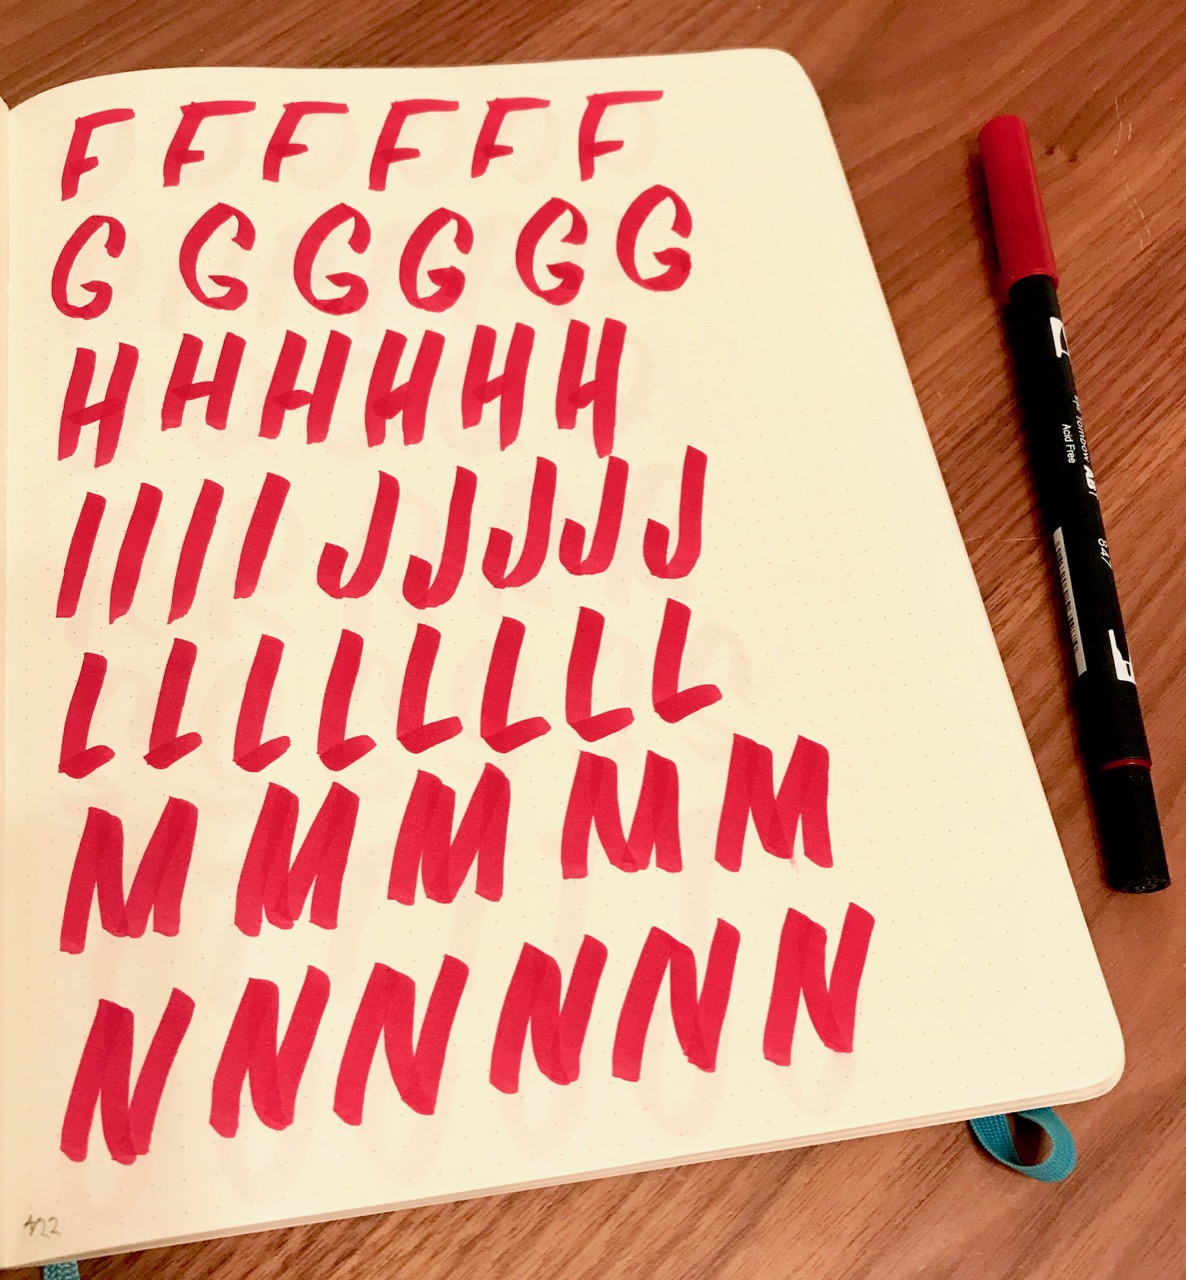 F F F F F F
G G G G G G
H H H H H H
I I I I J J J J J
L L L L L L L L
M M M M M
N N N N N N
Tombow ABT
Acid Free
847